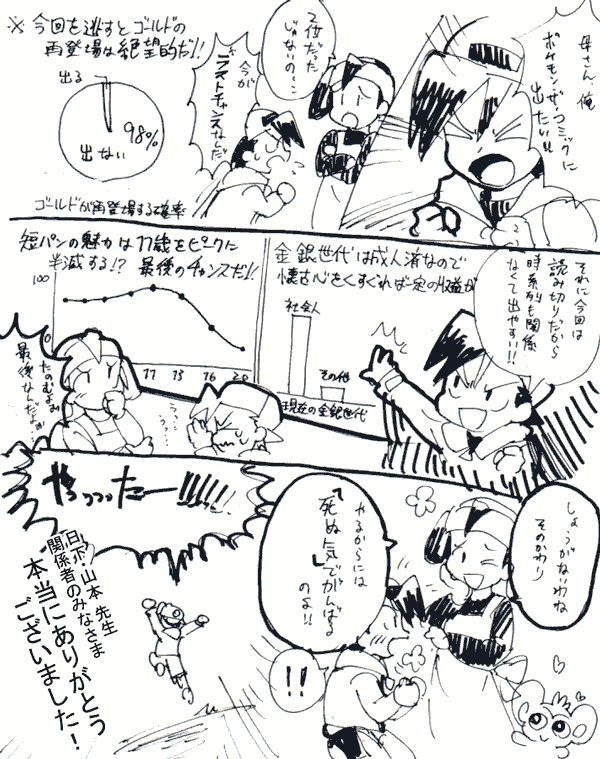 母さん、俺
ポケモン・ザ・コミックに
出たい!!
2位だった
じゃないの…
今が
ラストチャンスなんだ
※今回を逃すとゴールドの
再登場は絶望的だ!!
出る
98%
出ない
ゴールドが再登場する確率
それに今回は
読み切りだから
時系列も関係
なくて出やすい!!
金銀世代は成人済なので
懐古心をくすぐれば一定の収益が
社会人
その他
現在の金銀世代
短パンの魅力は11歳をピークに
半減する!? 最後のチャンスだ!!
100
0
11
13
16
20
たのむよお
最後なんだよお
うっ…
う…
しょうがないわね
そのかわり
やるからには
「死ぬ気でがんばる」
のよ!!
!!
やっつったー!!!!!
日下・山本 先生
関係者のみなさま
本当にありがとう
ございました!